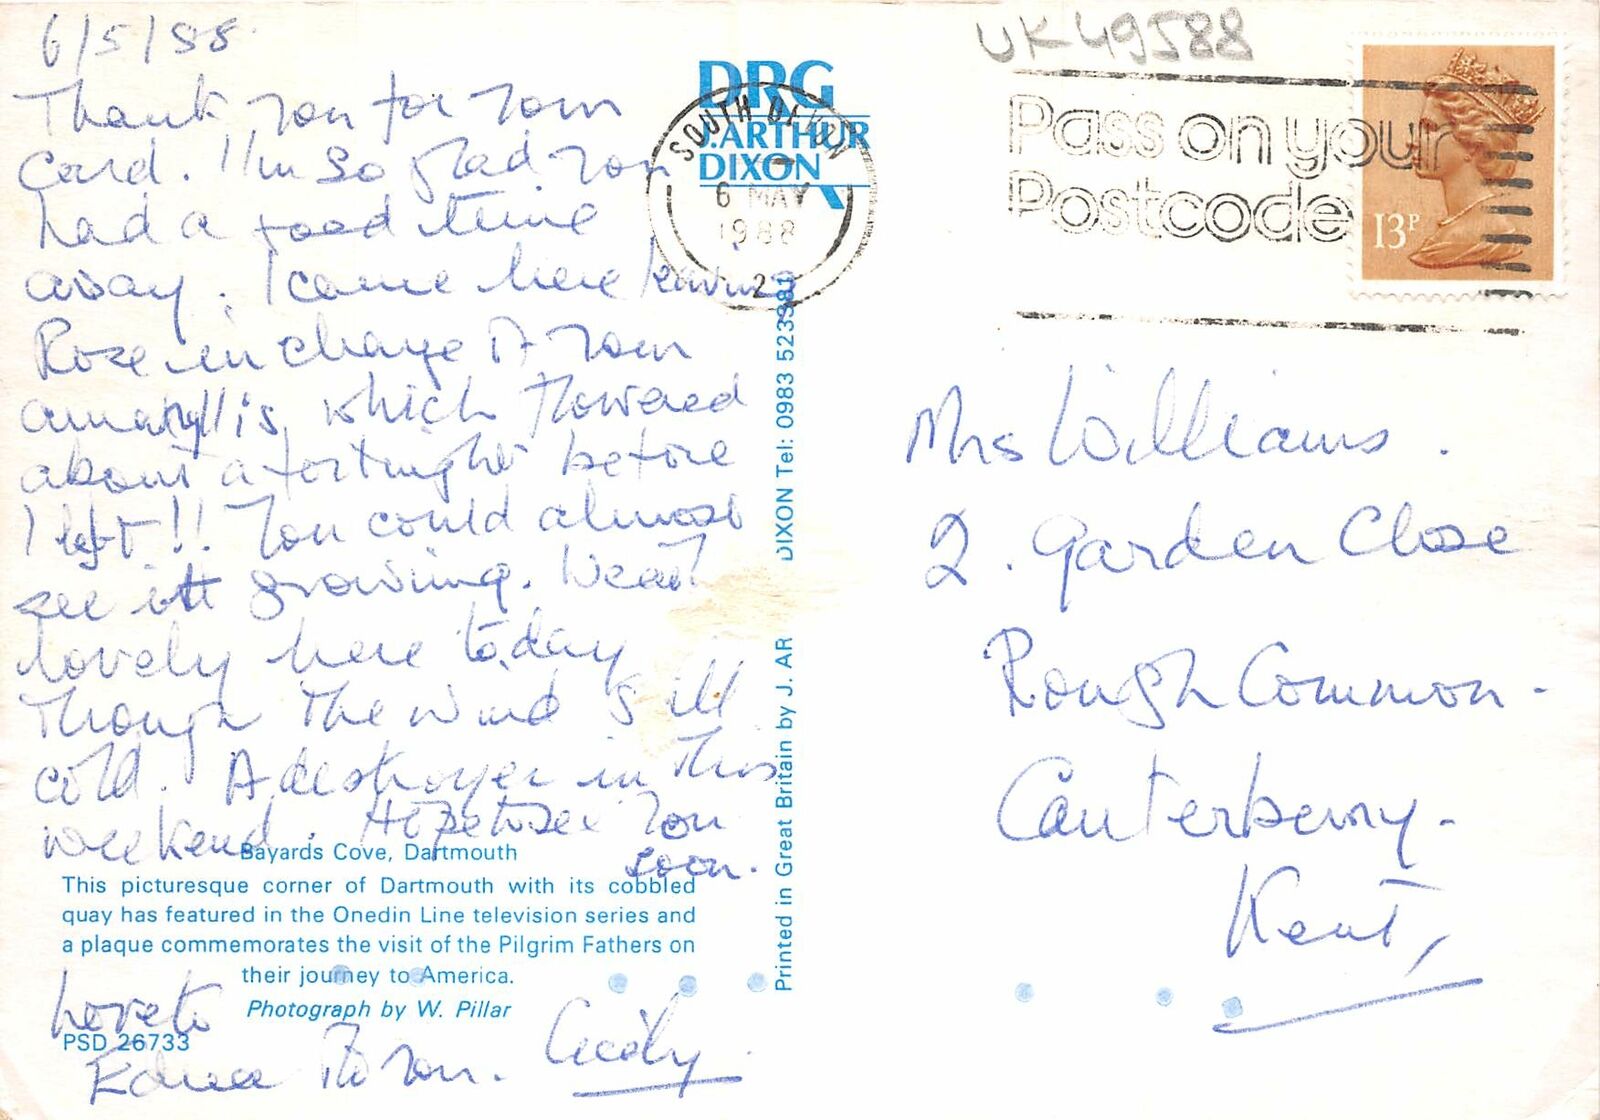 6/5/88
Thank you for your
card. I'm so glad you
had a good time
away. I came here leaving
Rose in charge of your
amaryllis, which flowered
about a fortnight before
I left!! You could almost
see it growing. Weath
lovely here today
though the wind is ill
cold. A destroyer in this
weekend. Hope to see you
soon.
Love to
Edna &
you. Cicily
Bayards Cove, Dartmouth
This picturesque corner of Dartmouth with its cobbled
quay has featured in the Onedin Line television series and
a plaque commemorates the visit of the Pilgrim Fathers on
their journey to America.
Photograph by W. Pillar
PSD 26733
DRG
J. ARTHUR
DIXON
Printed in Great Britain by J. AR DIXON Tel: 0983 523381
UK49588
SOUTH DEVON
6 MAY
1988
2
Pass on your
Postcode
13P
Mrs Williams.
2. Garden Close
Rough Common-
Canterbury-
Kent,